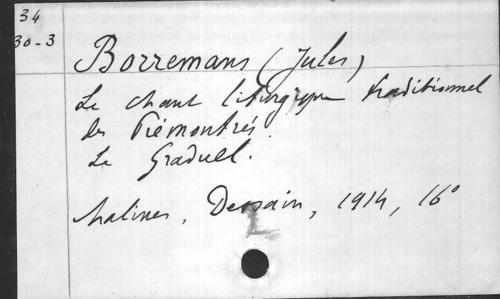 34
30-3
Borremans (Jules)
Le chant liturgique traditionnel
des Prémontrés.
Le Graduel.
Malines, Dessain, 1914, 16°
L